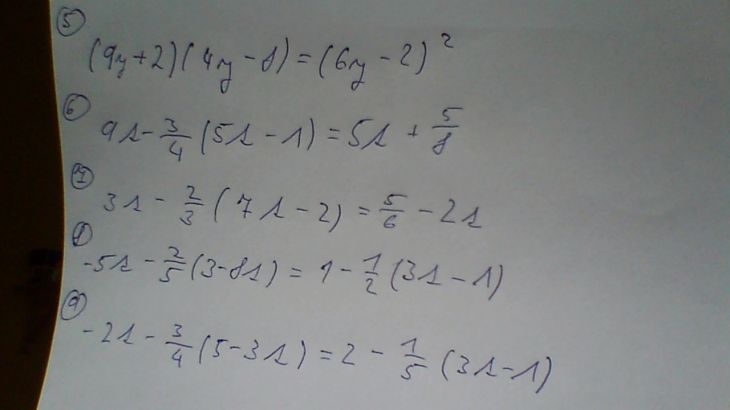 ⑤ (9y+2)(4y-8)=(6y-2)²
⑥ 9s-3/4(5s-1)=5s+5/8
⑦ 3s-2/3(7s-2)=5/6-2s
⑧ -5s-2/5(3-8s)=1-1/2(3s-1)
⑨ -2s-3/4(5-3s)=2-1/5(3s-1)